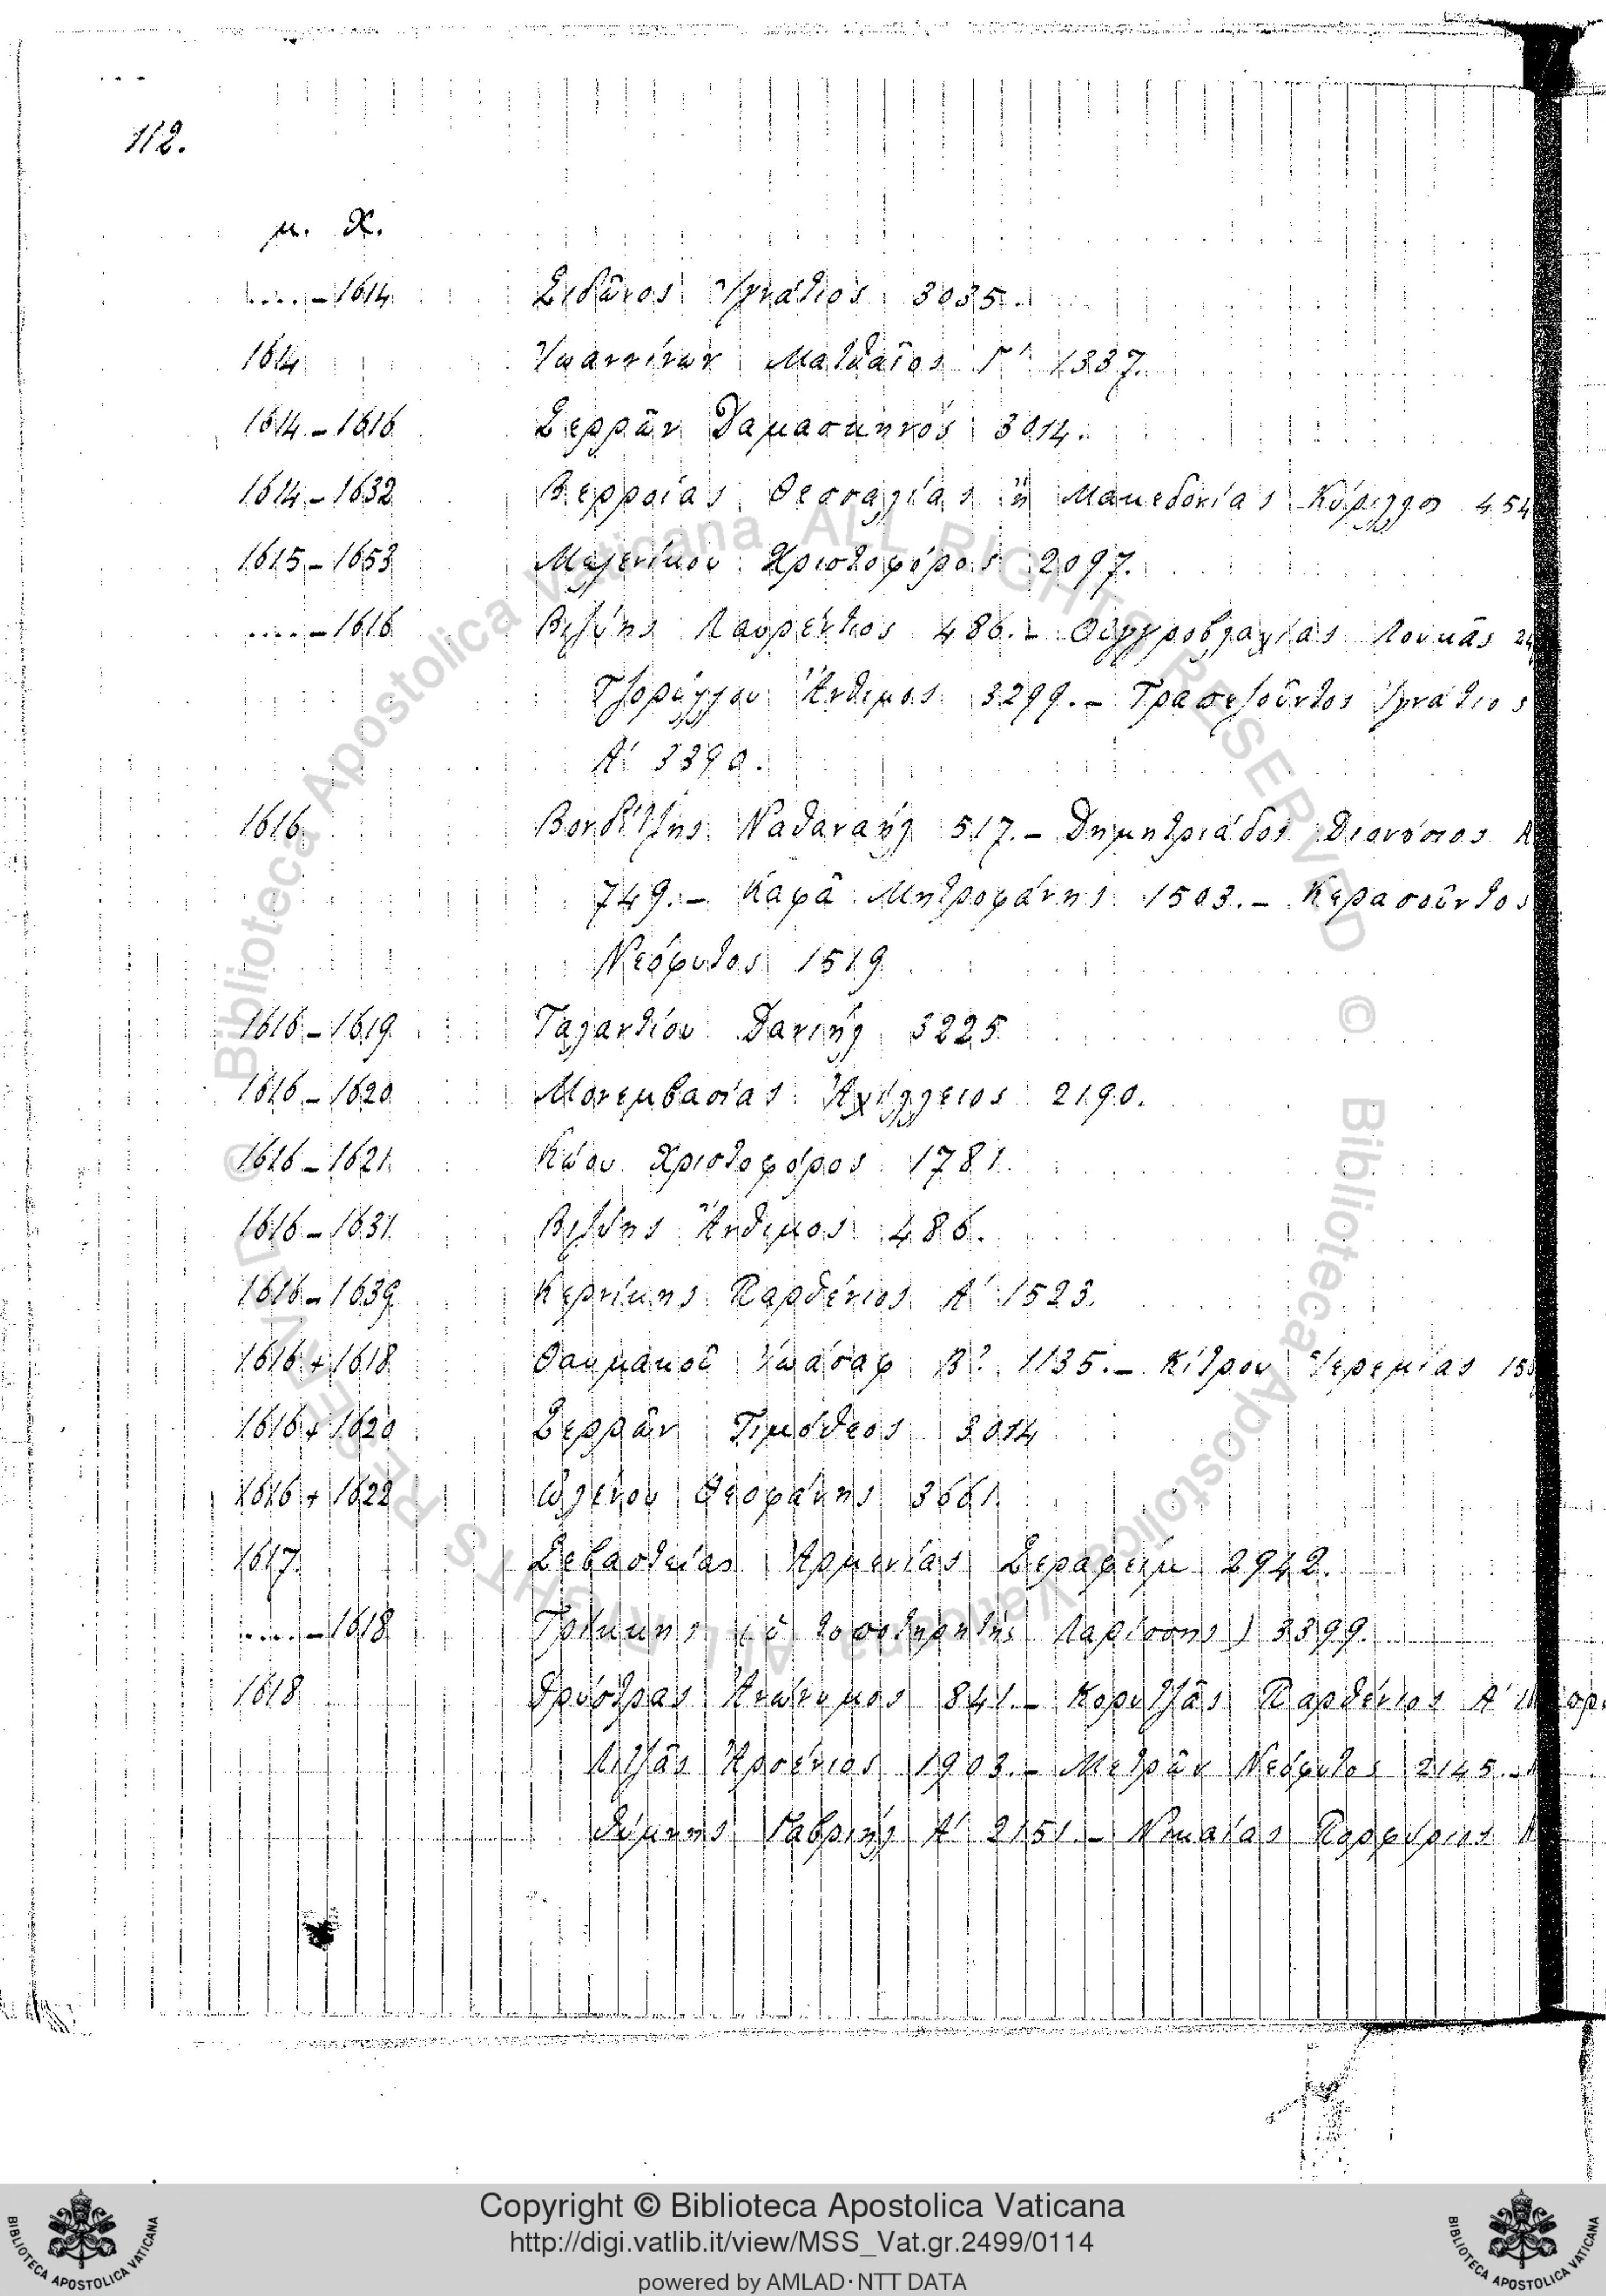 112.
μ. Χ.
....-1614 Σιδῶνος Ἰγνάτιος 3035.
1614 Ἰωαννίνων Ματθαῖος Γʹ 1337.
1614-1616 Σερρῶν Δαμασκηνός 3014.
1614-1632 Βερροίας Θεσσαλίας ἢ Μακεδονίας Κύριλλος 454
1615-1653 Μελενίκου Χριστοφόρος 2097.
....-1616 Βιζύης Λαυρέντιος 486.- Οὑγγροβλαχίας Λουκᾶς
Τζορύλλου Ἄνθιμος 3299.- Τραπεζοῦντος Ἰγνάτιος
Αʹ 3390.
1616 Βονδίτζης Ναθαναήλ 517.- Δημητριάδος Διονύσιος Α
749.- Καφᾶ Μητροφάνης 1503.- Κερασοῦντος
Νεόφυτος 1519
1616-1619 Γαλαντίου Δανιήλ 3225
1616-1620 Μονεμβασίας Ἀχίλλειος 2190.
1616-1621 Κώου Χριστοφόρος 1781.
1616-1631 Βιζύης Ἄνθιμος 486.
1616-1639 Κερνίκης Παρθένιος Αʹ 1523.
1616+1618 Θαυμακοῦ Ἰωάσαφ Βʹ 1135.- Κίτρου Ἱερεμίας
1616+1620 Σερρῶν Τιμόθεος 3014
1616+1622 Ὠλένου Θεοφάνης 3661.
1617 Σεβαστείας Ἀρμενίας Σεραφείμ 2942.
....-1618 Τρίκκης (ὁ τοποτηρητής Λαρίσσης) 3399.
1618 Δρύστρας Ἀνώνυμος 841.- Κορυτζᾶς Παρθένιος Αʹ
Λιτζᾶς Ἀρσένιος 1903.- Μετρῶν Νεόφυτος 2145.-
θύμνης Γαβριήλ Αʹ 2151.- Νικαίας Πορφύριος Α
Copyright © Biblioteca Apostolica Vaticana
http://digi.vatlib.it/view/MSS_Vat.gr.2499/0114
powered by AMLAD·NTT DATA